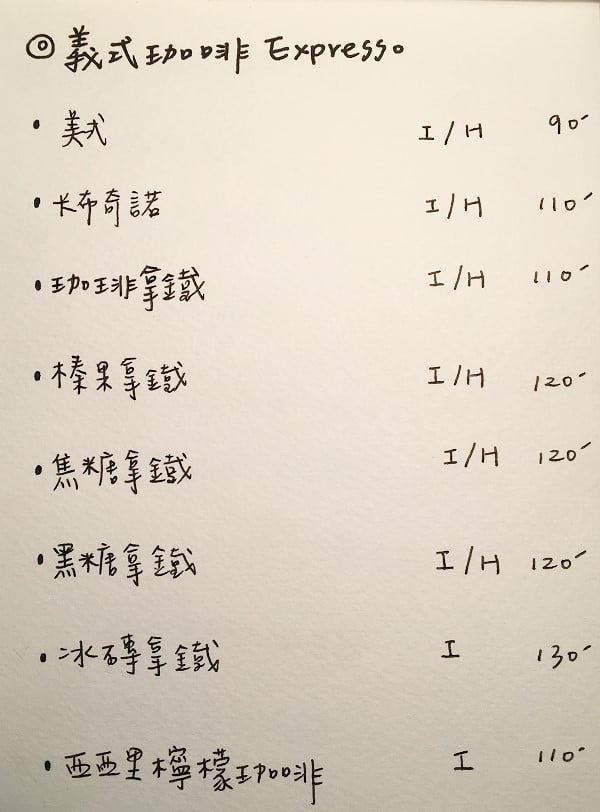 ◎ 義式咖啡 Expresso
• 美式 I/H 90-
• 卡布奇諾 I/H 110-
• 珈琲拿鐵 I/H 110-
• 榛果拿鐵 I/H 120-
• 焦糖拿鐵 I/H 120-
• 黑糖拿鐵 I/H 120-
• 冰磚拿鐵 I 130-
• 西西里檸檬咖啡 I 110-